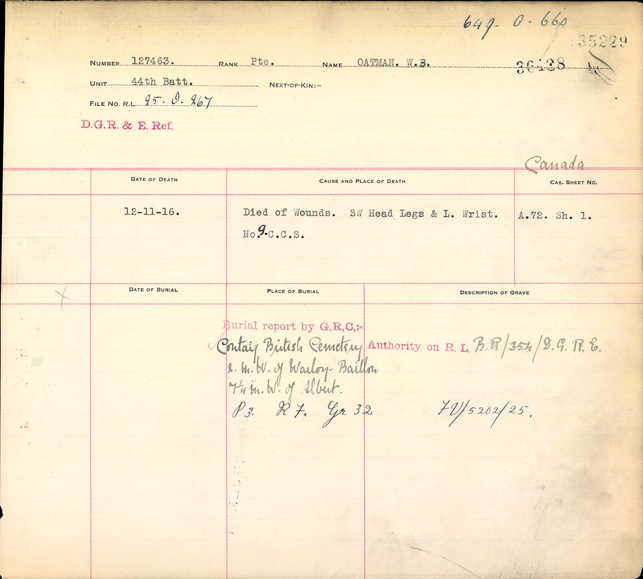 649-O-660
35229
NUMBER 127463. RANK Pte. NAME OATMAN. W.B.
36428
UNIT 44th Batt. NEXT-OF-KIN:-
FILE NO. R.L. 25.O.267
D.G.R. & E. Ref.
Canada
DATE OF DEATH CAUSE AND PLACE OF DEATH CAS. SHEET NO.
12-11-16. Died of Wounds. SW Head Legs & L. Wrist. A.72. Sh. 1.
No.9.C.C.S.
DATE OF BURIAL PLACE OF BURIAL DESCRIPTION OF GRAVE
Burial report by G.R.C:-
Contay British Cemetery Authority on R. L. B.R/354/D.G.R.E.
2. m. W. of Warloy-Baillon
7¼ m. W. of Albert.
P3. R 7. Gr 32 7V/5202/25.